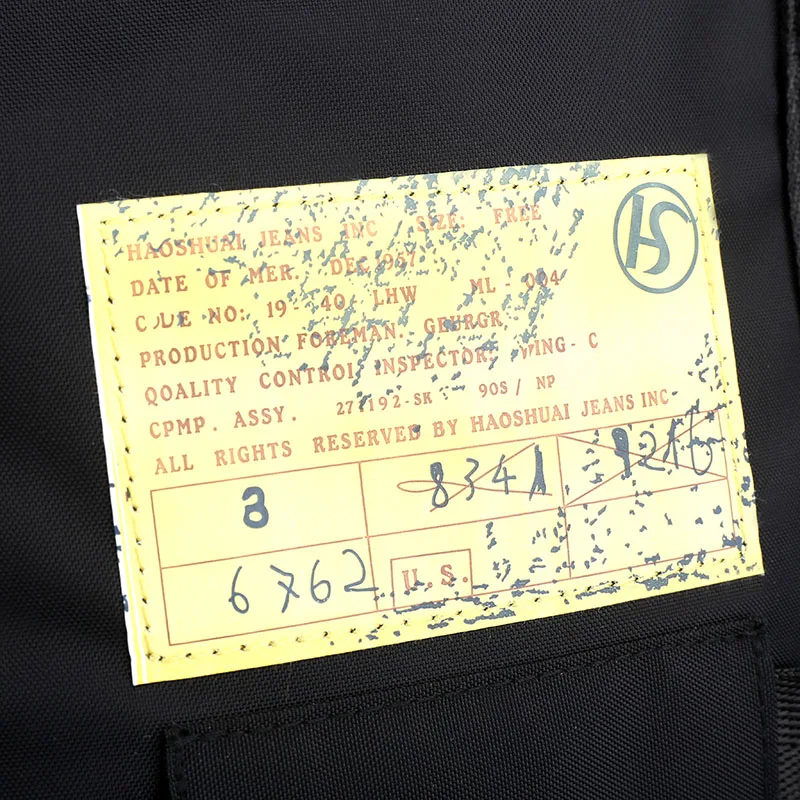 HAOSHUAI JEANS INC SIZE: FREE
HS
DATE OF MER. DEC 1957
CODE NO: 19-40 LHW ML-004
PRODUCTION FOREMAN. GEURGR
QOALITY CONTROL INSPECTOR: WING-C
CPMP. ASSY. 27192-SK 90S / NP
ALL RIGHTS RESERVED BY HAOSHUAI JEANS INC
3 8341 9216
6762 U.S.